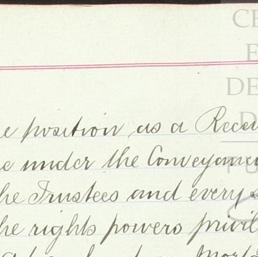 CE
E
DE
D
e position as a Recei
e under the Conveyanc
he Trustees and every
he rights powers privil